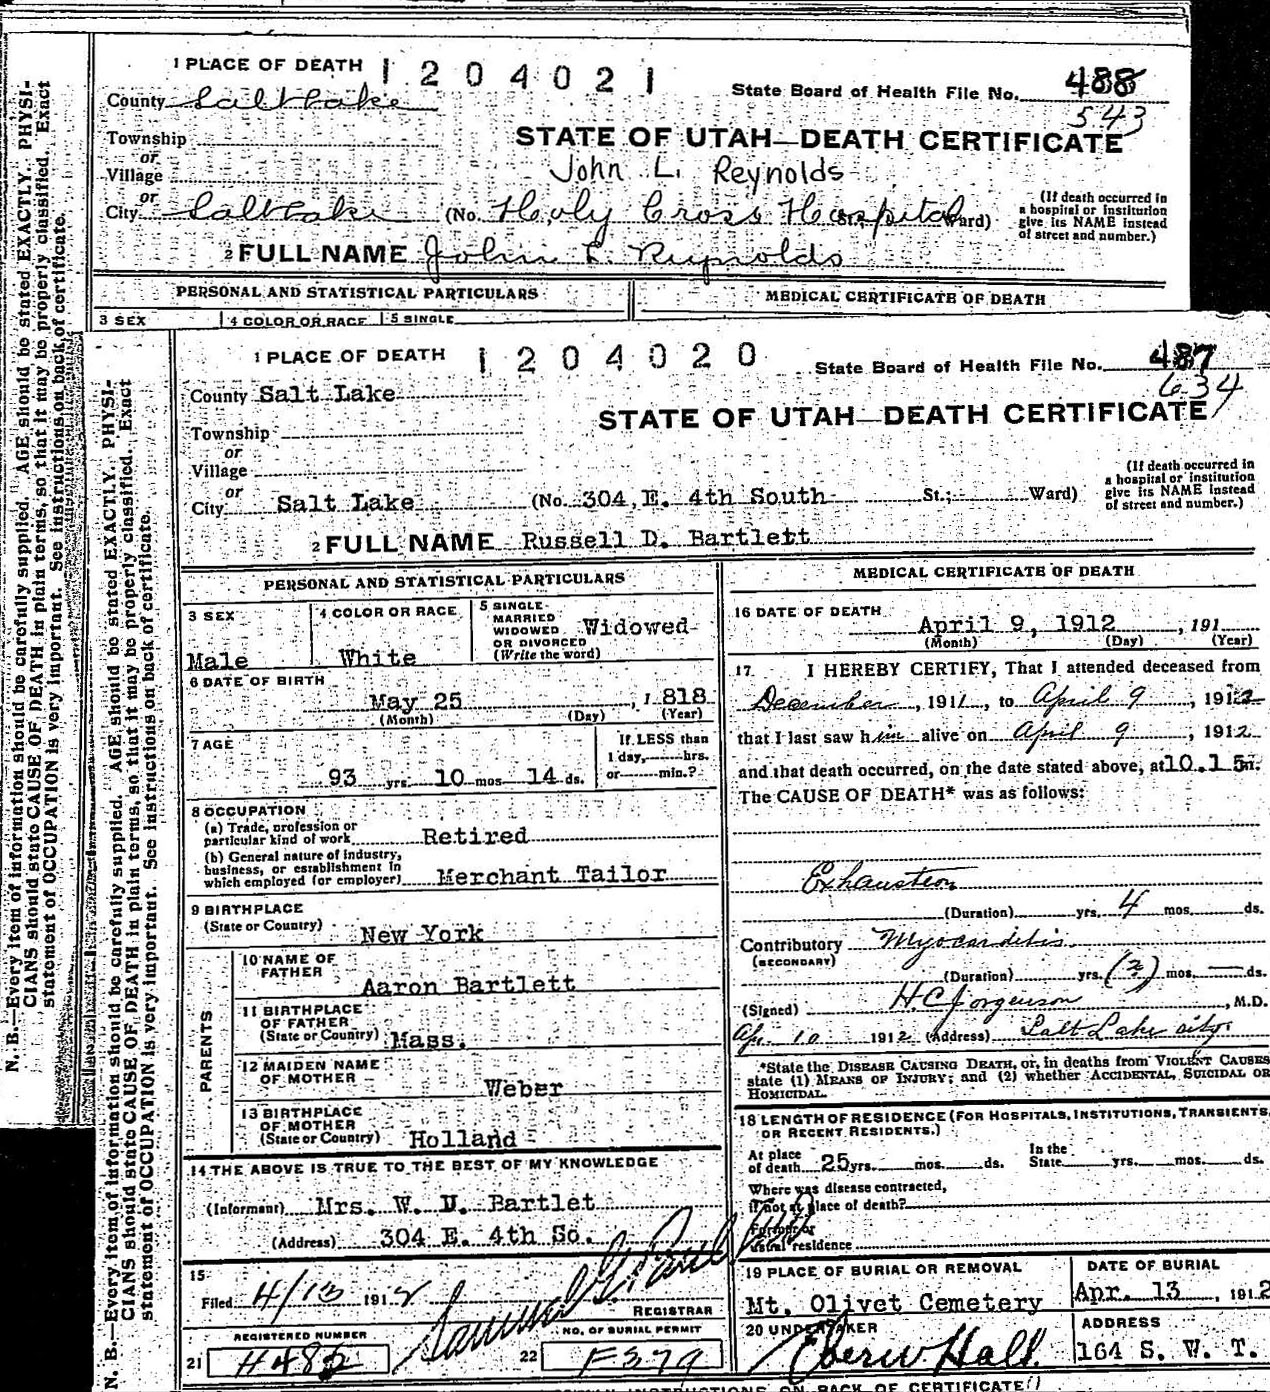 1 PLACE OF DEATH 1204021
State Board of Health File No. 488
543
County Salt Lake
STATE OF UTAH—DEATH CERTIFICATE
Township
or
Village
John L. Reynolds
or
City Salt Lake (No. Holy Cross Hospital St.; Ward)
(If death occurred in
a hospital or institution
give its NAME instead
of street and number.)
2 FULL NAME John L. Reynolds
PERSONAL AND STATISTICAL PARTICULARS
MEDICAL CERTIFICATE OF DEATH
3 SEX 4 COLOR OR RACE 5 SINGLE
N. B.—Every item of information should be carefully supplied. AGE should be stated EXACTLY. PHYSI-
CIANS should state CAUSE OF DEATH in plain terms, so that it may be properly classified. Exact
statement of OCCUPATION is very important. See instructions on back of certificate.
1 PLACE OF DEATH 1204020
State Board of Health File No. 487
634
County Salt Lake
STATE OF UTAH—DEATH CERTIFICATE
Township
or
Village
or
City Salt Lake (No. 304 E. 4th South St.; Ward)
(If death occurred in
a hospital or institution
give its NAME instead
of street and number.)
2 FULL NAME Russell D. Bartlett
N. B.—Every item of information should be carefully supplied. AGE should be stated EXACTLY. PHYSI-
CIANS should state CAUSE OF DEATH in plain terms, so that it may be properly classified. Exact
statement of OCCUPATION is very important. See instructions on back of certificate.
PERSONAL AND STATISTICAL PARTICULARS
3 SEX
Male
4 COLOR OR RACE
White
5 SINGLE
MARRIED
WIDOWED
OR DIVORCED
(Write the word)
Widowed
6 DATE OF BIRTH
May 25, 1818
(Month) (Day) (Year)
7 AGE
93 yrs. 10 mos 14 ds.
If LESS than
1 day, hrs.
or min.?
8 OCCUPATION
(a) Trade, profession or
particular kind of work Retired
(b) General nature of industry,
business, or establishment in
which employed (or employer) Merchant Tailor
9 BIRTHPLACE
(State or Country) New York
PARENTS
10 NAME OF
FATHER
Aaron Bartlett
11 BIRTHPLACE
OF FATHER
(State or Country) Mass.
12 MAIDEN NAME
OF MOTHER
Weber
13 BIRTHPLACE
OF MOTHER
(State or Country) Holland
14 THE ABOVE IS TRUE TO THE BEST OF MY KNOWLEDGE
(Informant) Mrs. W. D. Bartlet
(Address) 304 E. 4th So.
15
Filed 4/13 1912
Samuel G. Paul
REGISTRAR
REGISTERED NUMBER
21
NO. OF BURIAL PERMIT
22 F379
MEDICAL CERTIFICATE OF DEATH
16 DATE OF DEATH
April 9, 1912, 191
(Month) (Day) (Year)
17 I HEREBY CERTIFY, That I attended deceased from
December, 1911, to April 9, 1912
that I last saw him alive on April 9, 1912
and that death occurred, on the date stated above, at 10.15 m.
The CAUSE OF DEATH* was as follows:
Exhaustion
(Duration) yrs. 4 mos. ds.
Contributory Myocarditis
(SECONDARY)
(Duration) yrs. (?) mos. ds.
(Signed) H.C. Jorgenson, M.D.
Apr. 10 1912 (Address) Salt Lake city.
*State the DISEASE CAUSING DEATH, or, in deaths from VIOLENT CAUSES
state (1) MEANS OF INJURY; and (2) whether ACCIDENTAL, SUICIDAL OR
HOMICIDAL.
18 LENGTH OF RESIDENCE (FOR HOSPITALS, INSTITUTIONS, TRANSIENTS,
OR RECENT RESIDENTS.)
At place
of death 25 yrs. mos. ds.
In the
State yrs. mos. ds.
Where was disease contracted,
if not at place of death?
Former or
usual residence
19 PLACE OF BURIAL OR REMOVAL
Mt. Olivet Cemetery
DATE OF BURIAL
Apr. 13, 1912
20 UNDERTAKER
Eber W Hall
ADDRESS
164 S. W. T.
INSTRUCTIONS ON BACK OF CERTIFICATE